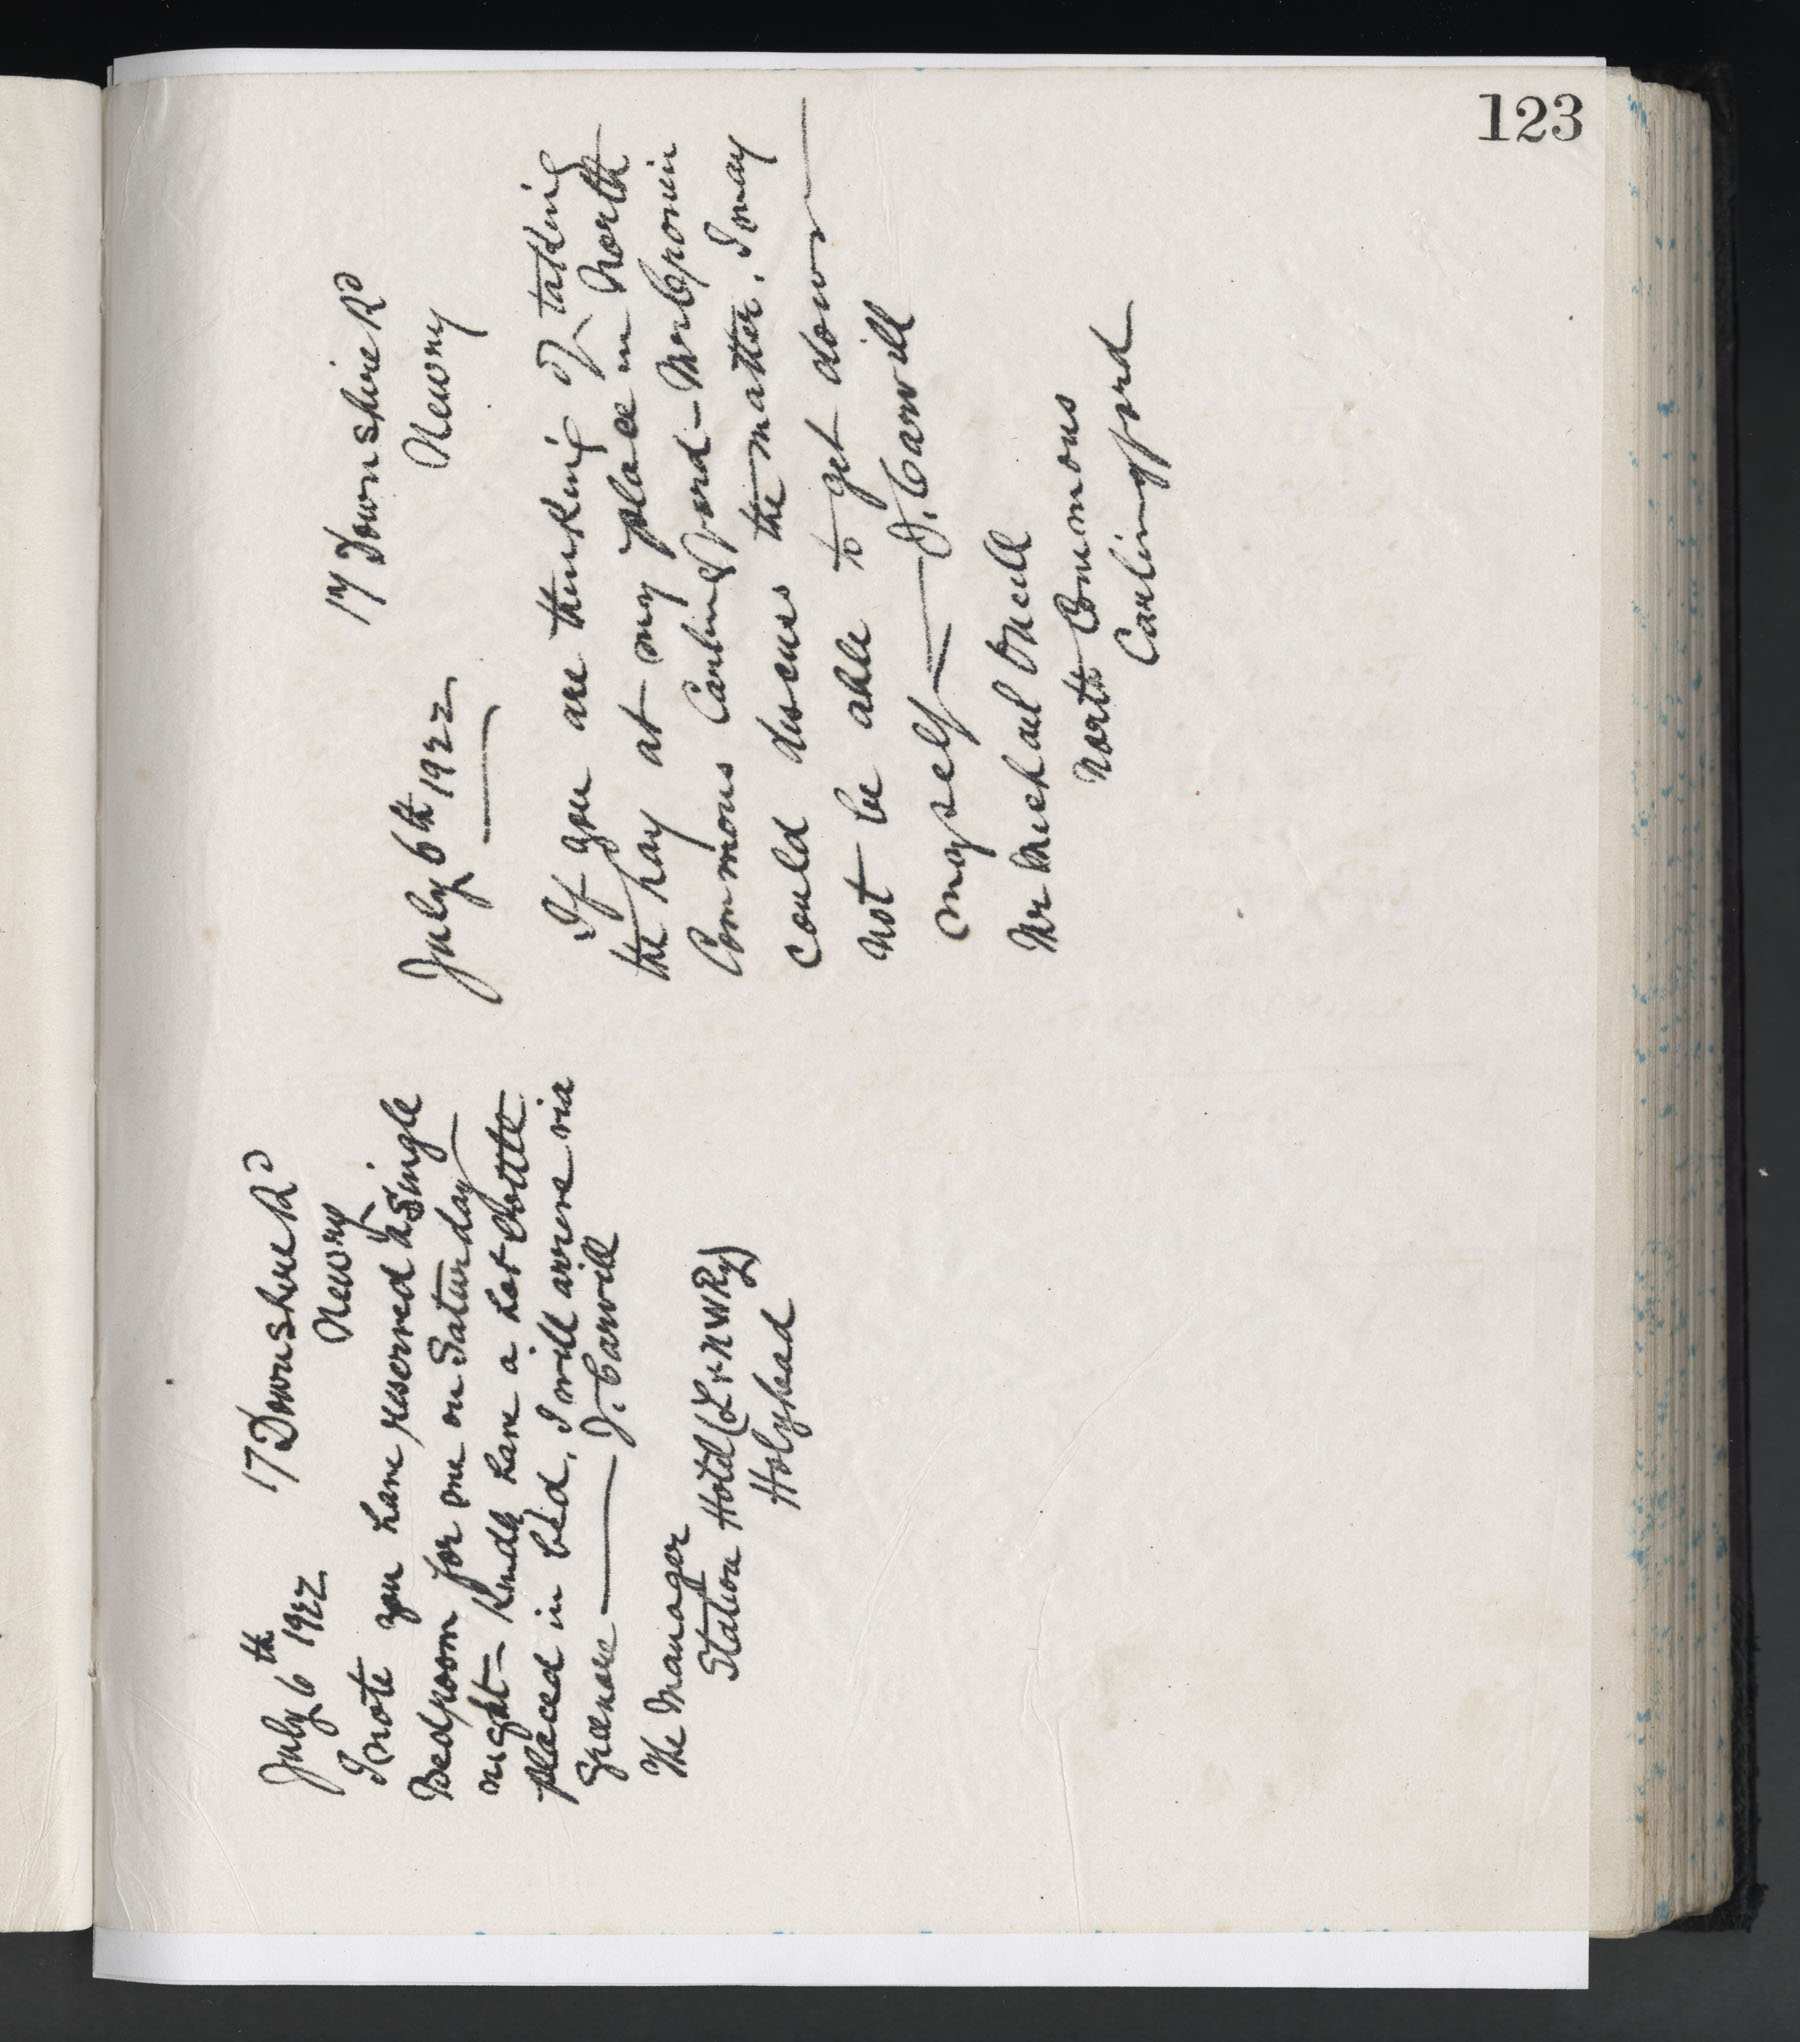 123
July 6th 1922 17 Downshire Rd
Newry
I note you have reserved a Single
Bedroom for me on Saturday
night - Kindly have a hot bottle
placed in bed, I will arrive via
Greenore — J. Carvill
The Manager
Station Hotel (L & N W Ry)
Holyhead
17 Downshire Rd
Newry
July 6th 1922
If you are thinking of taking
the hay at my place in North
Commons Carlingford - Mr Cronin
could discuss the matter. I may
not be able to get down
myself — J. Carvill
Mr Michael ONeill
North Commons
Carlingford